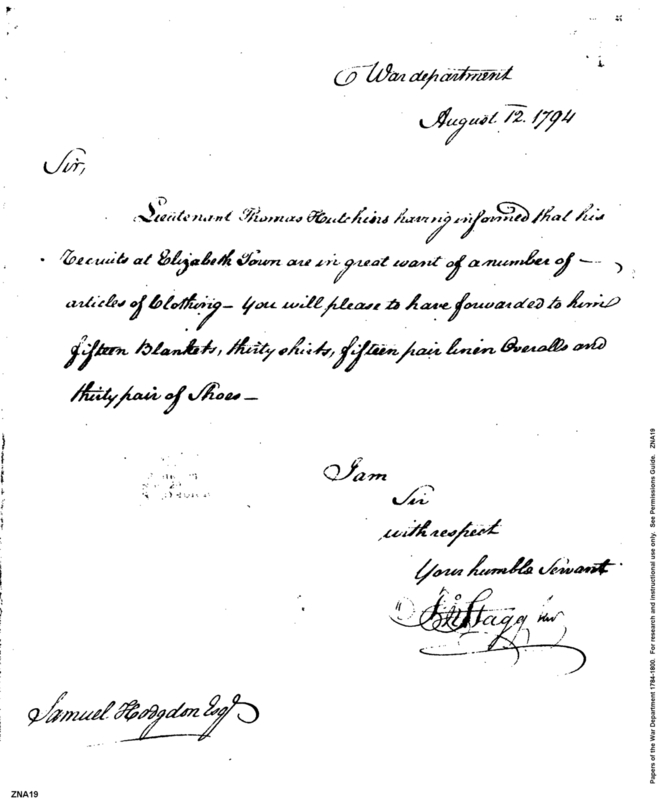 War department
August 12. 1794
Sir,
Lieutenant Thomas Hutchins having informed that his
Recruits at Elizabeth Town are in great want of a number of —
articles of Clothing — You will please to have forwarded to him
fifteen Blankets, thirty shirts, fifteen pair linen Overalls and
thirty pair of Shoes —
I am
Sir
with respect
Your humble Servant
Stagg Jur
Samuel Hodgdon Esqr
ZNA19
Papers of the War Department 1784-1800. For research and instructional use only. See Permissions Guide. ZNA19